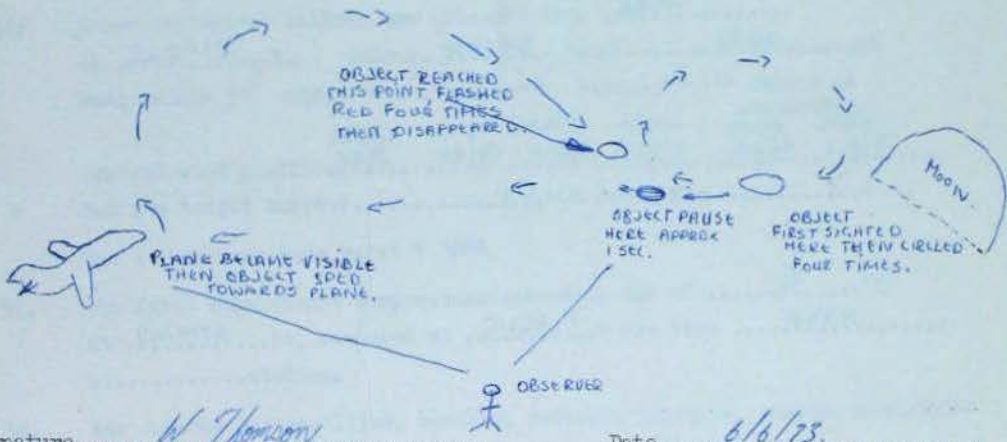 OBJECT REACHED
THIS POINT FLASHED
RED FOUR TIMES
THEN DISAPPEARED.
MOON.
OBJECT PAUSE
HERE APPROX
1 SEC.
OBJECT
FIRST SIGHTED
HERE THEN CIRCLED
FOUR TIMES.
PLANE BECAME VISIBLE
THEN OBJECT SPED
TOWARDS PLANE.
OBSERVER
W Thomson
Date 6/6/73